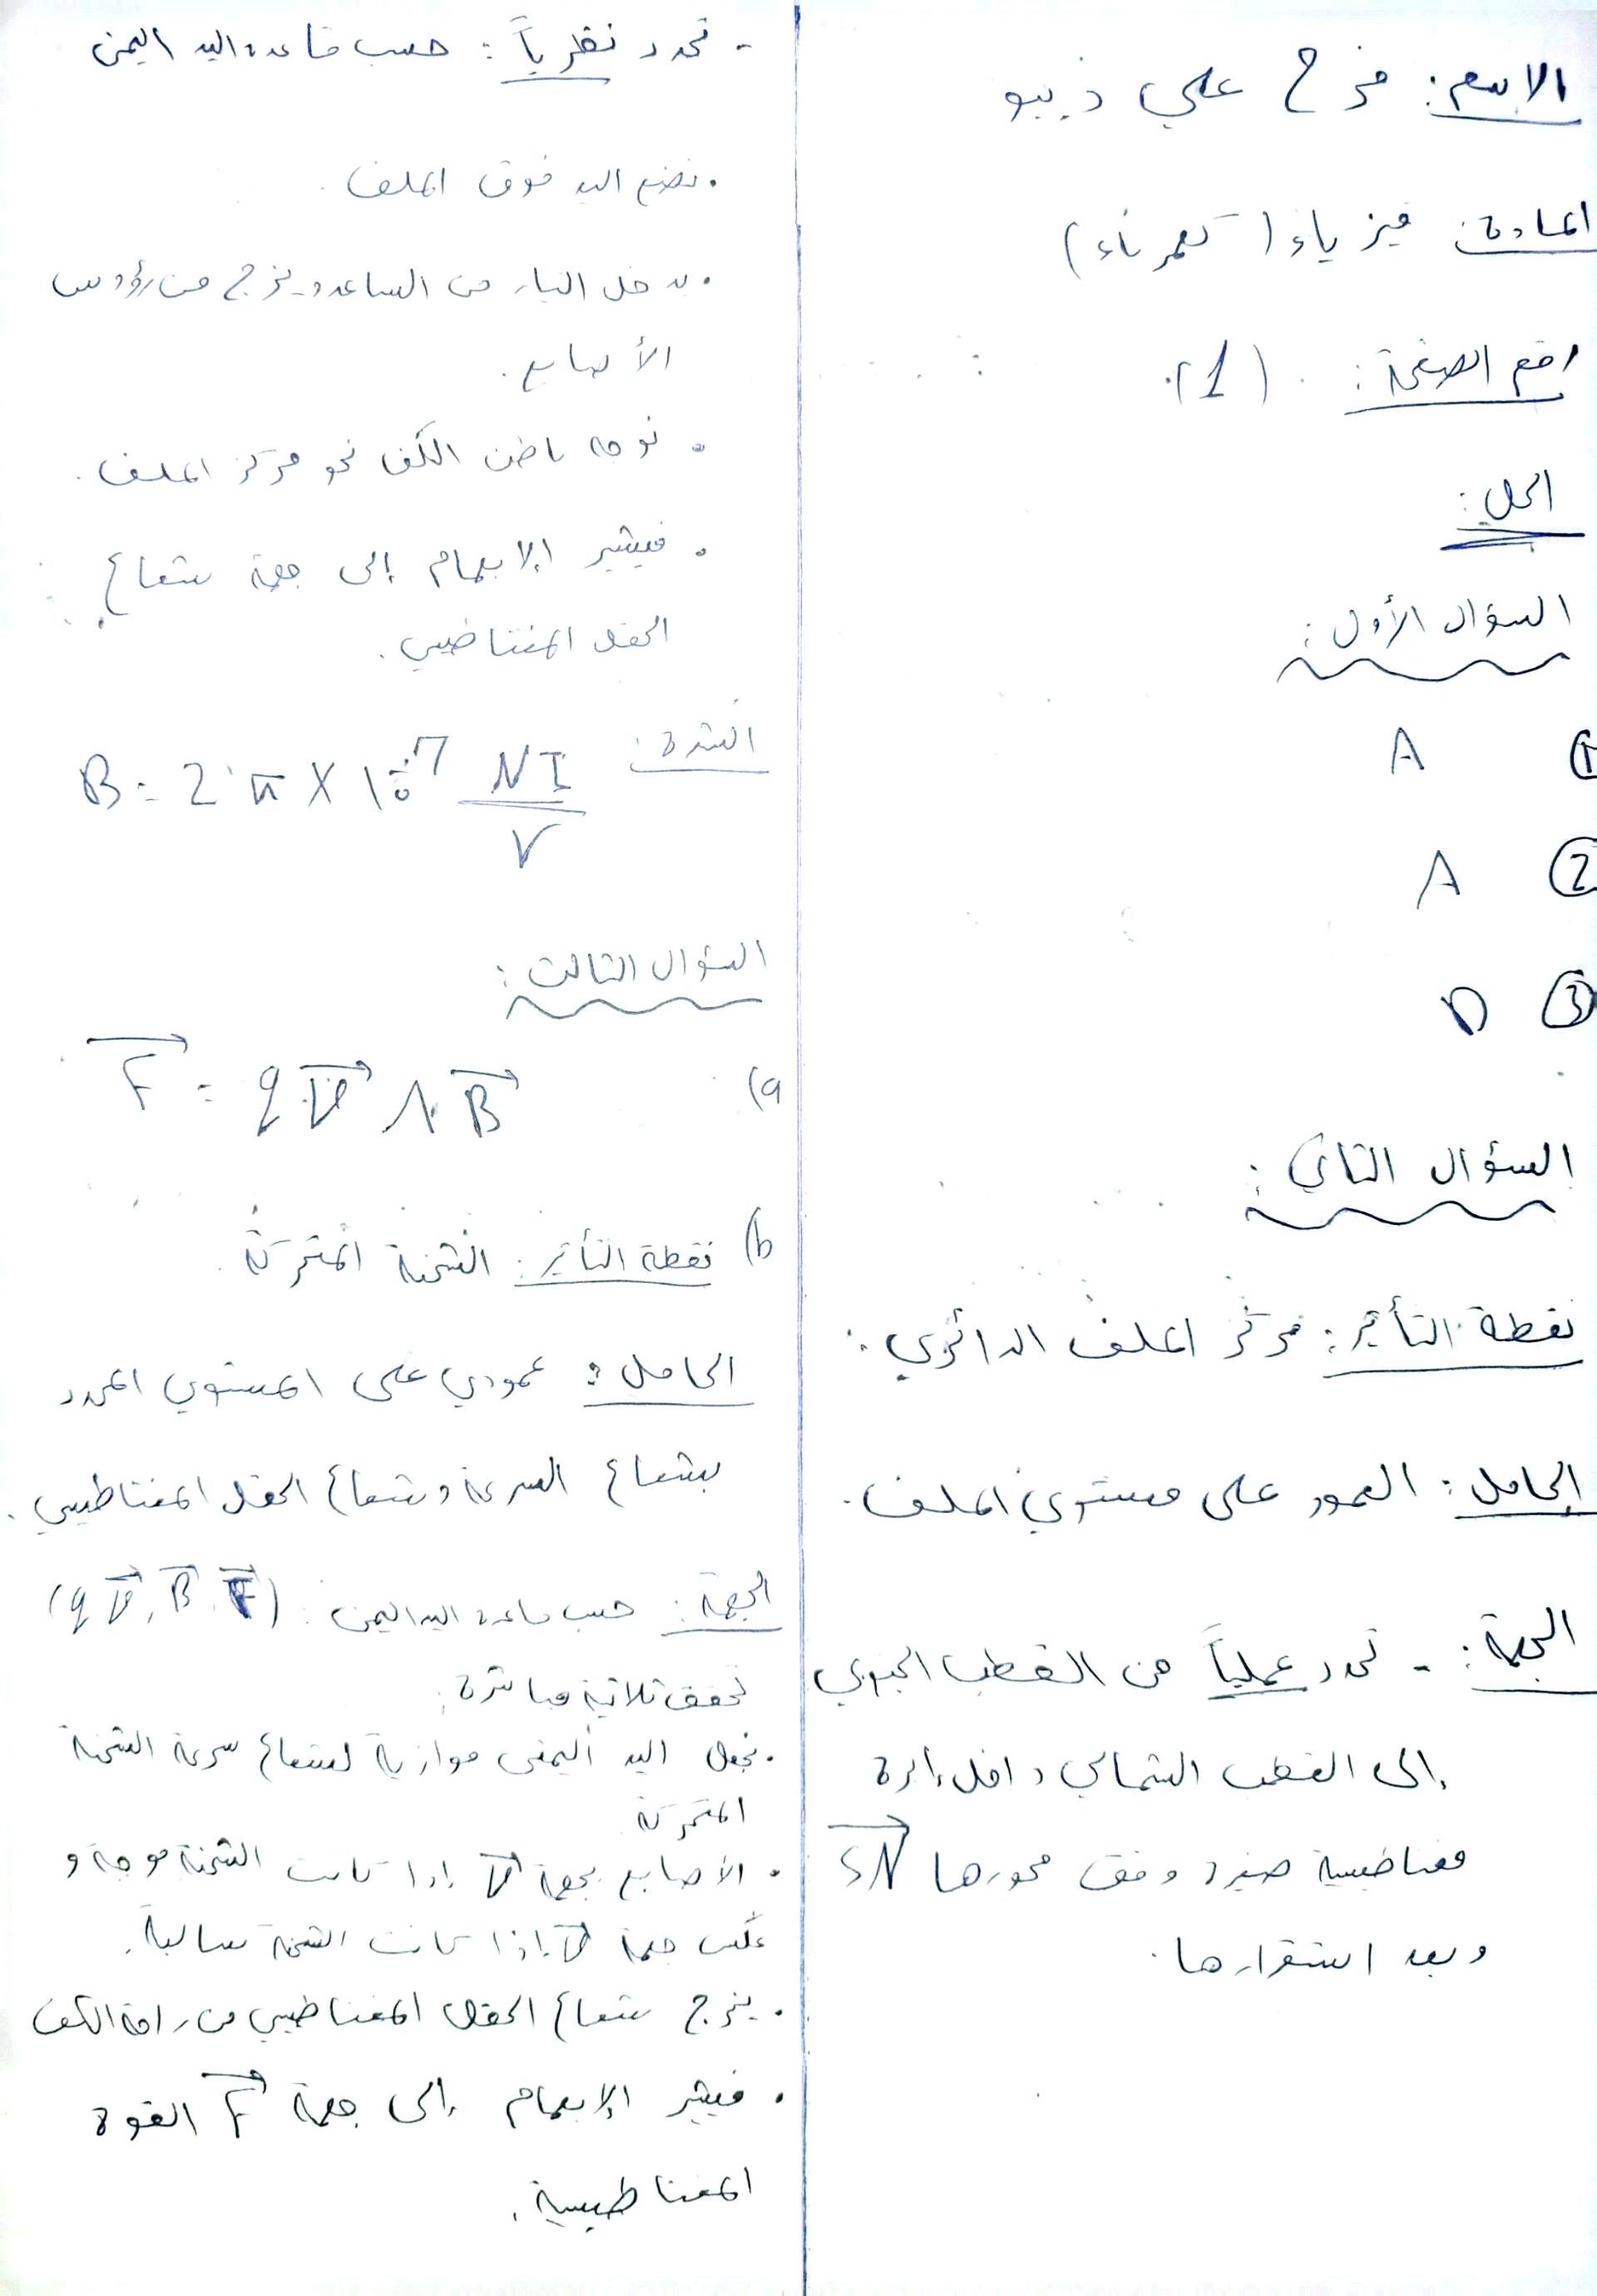 الاسم: فرح علي ديبو
المادة: فيزياء (كهرباء)
رقم الصفحة: (1)
الحل:
السؤال الأول:
① A
② A
③ D
السؤال الثاني:
نقطة التأثير: مركز الملف الدائري.
الحامل: العمود على مستوي الملف.
الجهة: - تحدد عملياً من القطب الجنوبي
إلى القطب الشمالي داخل إبرة
مغناطيسية صغيرة وفق محورها SN
وبعد استقرارها.
- تحدد نظرياً: حسب قاعدة اليد اليمنى
. نضع اليد فوق الملف.
. يدخل التيار من الساعد ويخرج من رؤوس
الأصابع.
. نوجه باطن الكف نحو مركز الملف.
. فيشير الإبهام إلى جهة شعاع
الحقل المغناطيسي.
الشدة: B = 2π × 10⁻⁷ NI / r
السؤال الثالث:
a) F = q v ∧ B
b) نقطة التأثير: الشحنة المتحركة.
الحامل: عمودي على المستوي المحدد
بشعاع السرعة وشعاع الحقل المغناطيسي.
الجهة: حسب قاعدة اليد اليمنى: (q v, B, F)
تحقق ثلاثية مباشرة:
. نجعل اليد اليمنى موازية لشعاع سرعة الشحنة
المتحركة
. الأصابع بجهة v إذا كانت الشحنة موجبة و
عكس جهة v إذا كانت الشحنة سالبة.
. يخرج شعاع الحقل المغناطيسي من راحة الكف
. فيشير الإبهام إلى جهة F القوة
المغناطيسية.